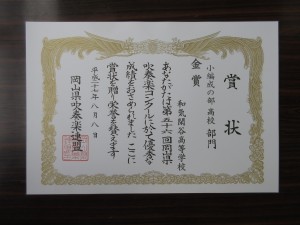 賞状
小編成の部 高校 部門
金賞
和気閑谷高等学校
あなたがたは第五十六回岡山県
吹奏楽コンクールに於て優秀な
成績をおさめられました ここに
賞状を贈り栄誉を讃えます
平成二十七年八月八日
岡山県吹奏楽連盟